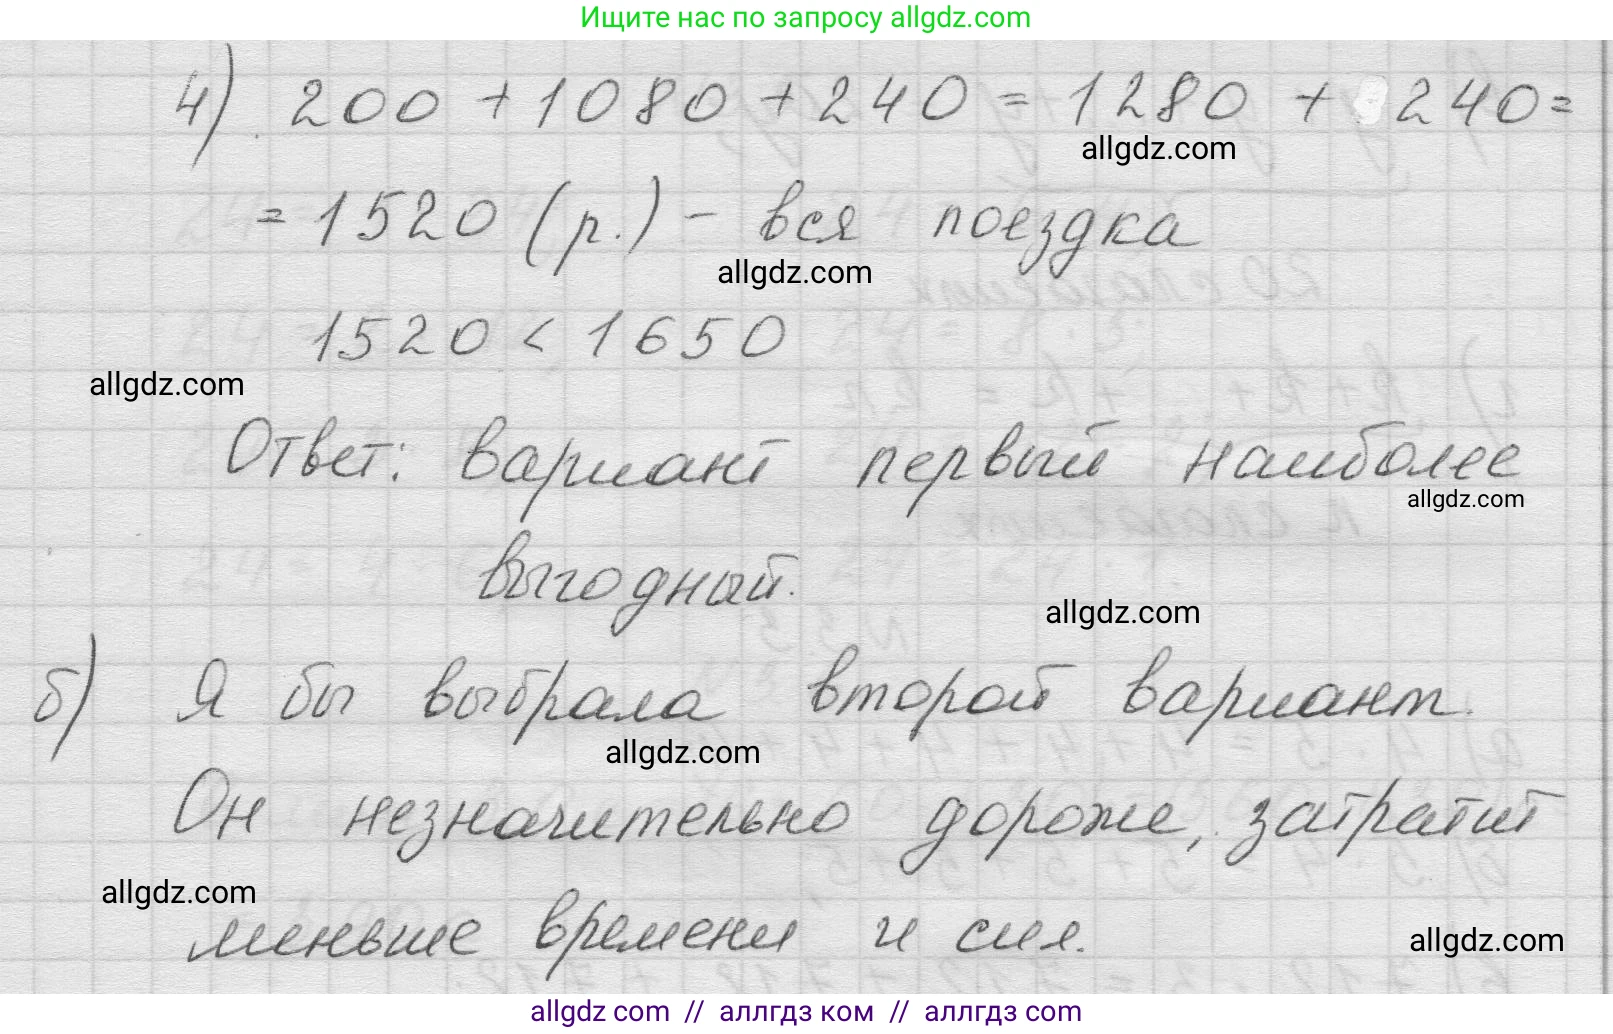 Ищите нас по запросу allgdz.com
4) 200 + 1080 + 240 = 1280 + 240 =
allgdz.com
= 1520 (р.) - вся поездка
allgdz.com
1520 < 1650
allgdz.com
Ответ: вариант первый наиболее
allgdz.com
выгодный.
allgdz.com
б) Я бы выбрала второй вариант.
allgdz.com
Он незначительно дороже, затратит
allgdz.com
меньше времени и сил.
allgdz.com
allgdz com // аллгдз ком // аллгдз com